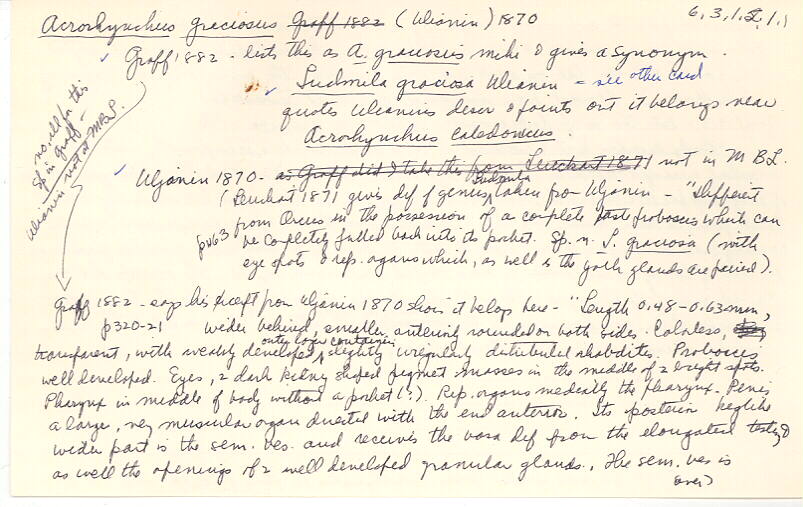 Acrorhynchus graciosus Graff 1882 (Ulianin) 1870
6,3,1,2,1,1
✓ Graff 1882 - lists this as A. graciosus mihi & gives a synonym.
✓ Ludmila graciosa Ulianin - see other card
quotes Ulianins descr & points out it belongs near
Acrorhynchus caledonicus.
no, all for this
sp in Graff -
Ulianin not at MBL.
✓ Uljanin 1870 - as Graff did I take this from Leuckart 1871 not in MBL
(Leuckart 1871 gives def of genus Ludmila taken from Uljanin - "Different
p263 from Orcus in the possession of a complete taste proboscis which can
be completely pulled back into its pocket. Sp. n. L. graciosa (with
eye spots & rep. organs which, as well as the yolk glands are paired).
Graff 1882 - says his excerpt from Uljanin 1870 shows it belongs here - "Length 0.48-0.63mm,
p320-21 wider behind, smaller anteriorly rounded on both sides. Colorless,
transparent, with weakly developed outer layer containing slightly irregularly distributed rhabdites. Proboscis
well developed. Eyes, 2 dark kidney shaped pigment masses in the middle of 2 bright spots.
Pharynx in middle of body without a pocket (?). Rep. organs medially the pharynx. Penis
a large, very muscular organ directed with the end anterior. Its posterior keglike
wider part is the sem. ves. and receives the vasa def from the elongated testes &
as well the openings of 2 well developed granular glands. The sem. ves is
over)